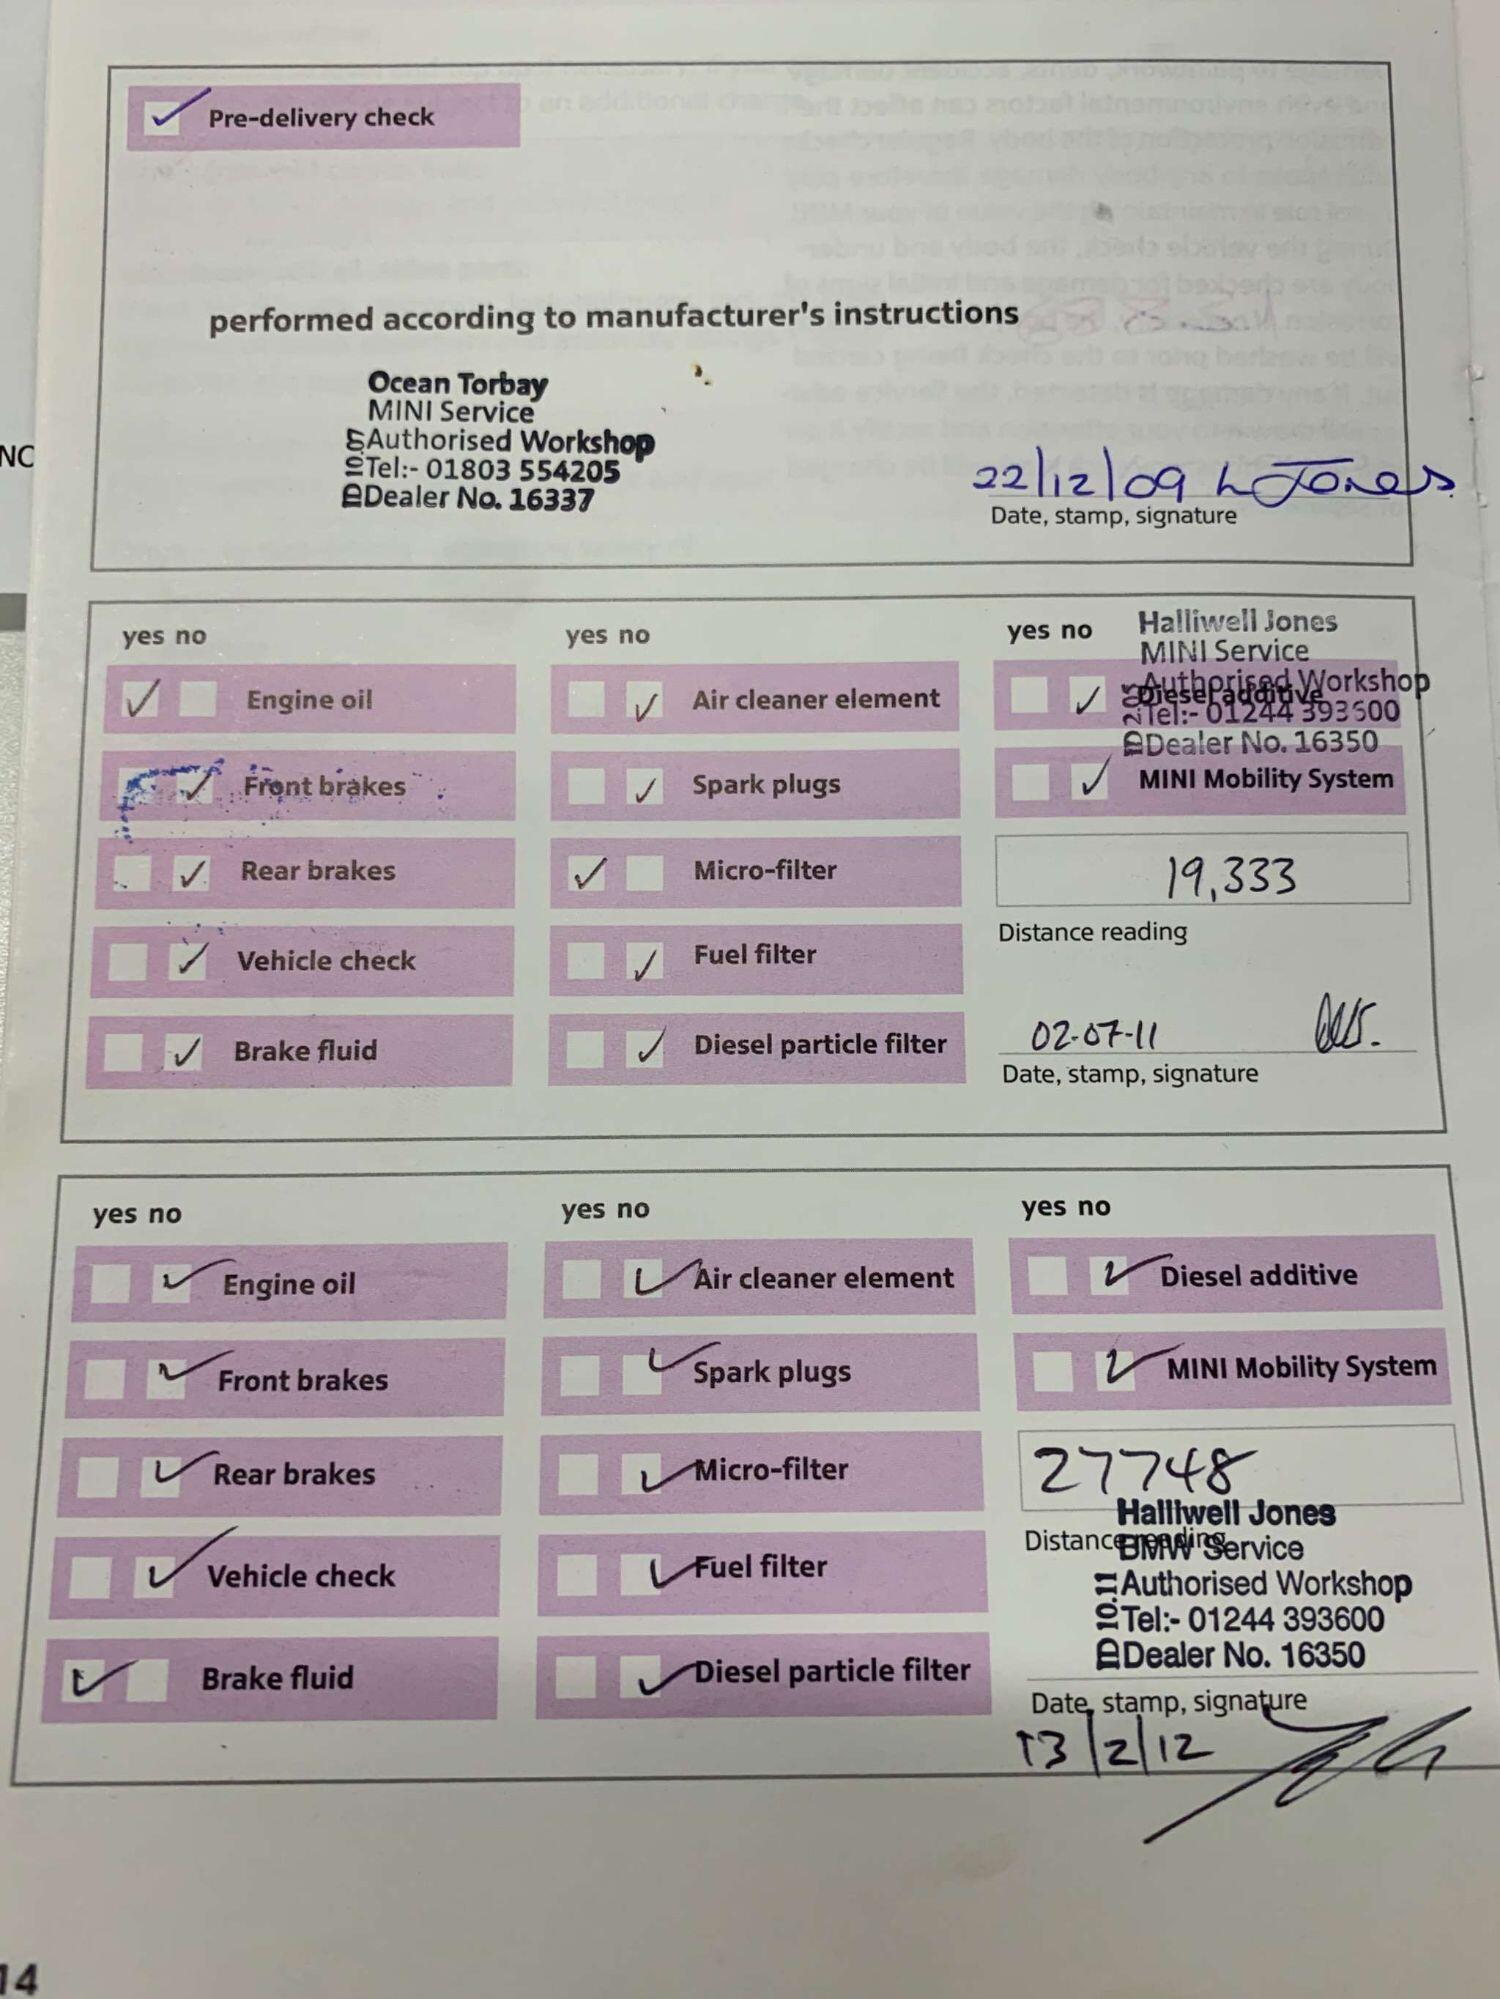 Pre-delivery check
performed according to manufacturer's instructions
Ocean Torbay
MINI Service
Authorised Workshop
Tel:- 01803 554205
Dealer No. 16337
22/12/09 L Jones
Date, stamp, signature
NC
yes no
Engine oil
Front brakes
Rear brakes
Vehicle check
Brake fluid
yes no
Air cleaner element
Spark plugs
Micro-filter
Fuel filter
Diesel particle filter
yes no
Halliwell Jones
MINI Service
Authorised Workshop
Diesel additive
Tel:- 01244 393600
Dealer No. 16350
MINI Mobility System
19,333
Distance reading
02-07-11
Date, stamp, signature
yes no
Engine oil
Front brakes
Rear brakes
Vehicle check
Brake fluid
yes no
Air cleaner element
Spark plugs
Micro-filter
Fuel filter
Diesel particle filter
yes no
Diesel additive
MINI Mobility System
27748
Distance reading
Halliwell Jones
BMW Service
Authorised Workshop
Tel:- 01244 393600
Dealer No. 16350
Date, stamp, signature
13/2/12
14